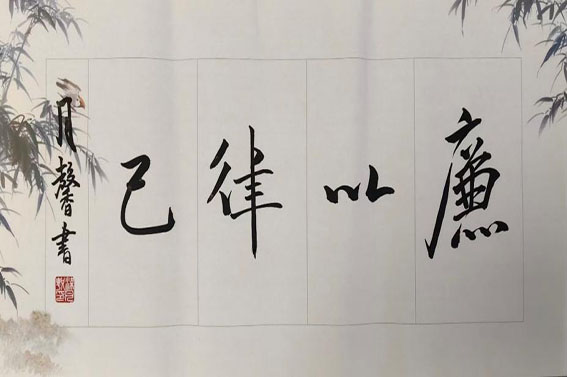 廉以律己
月馨书